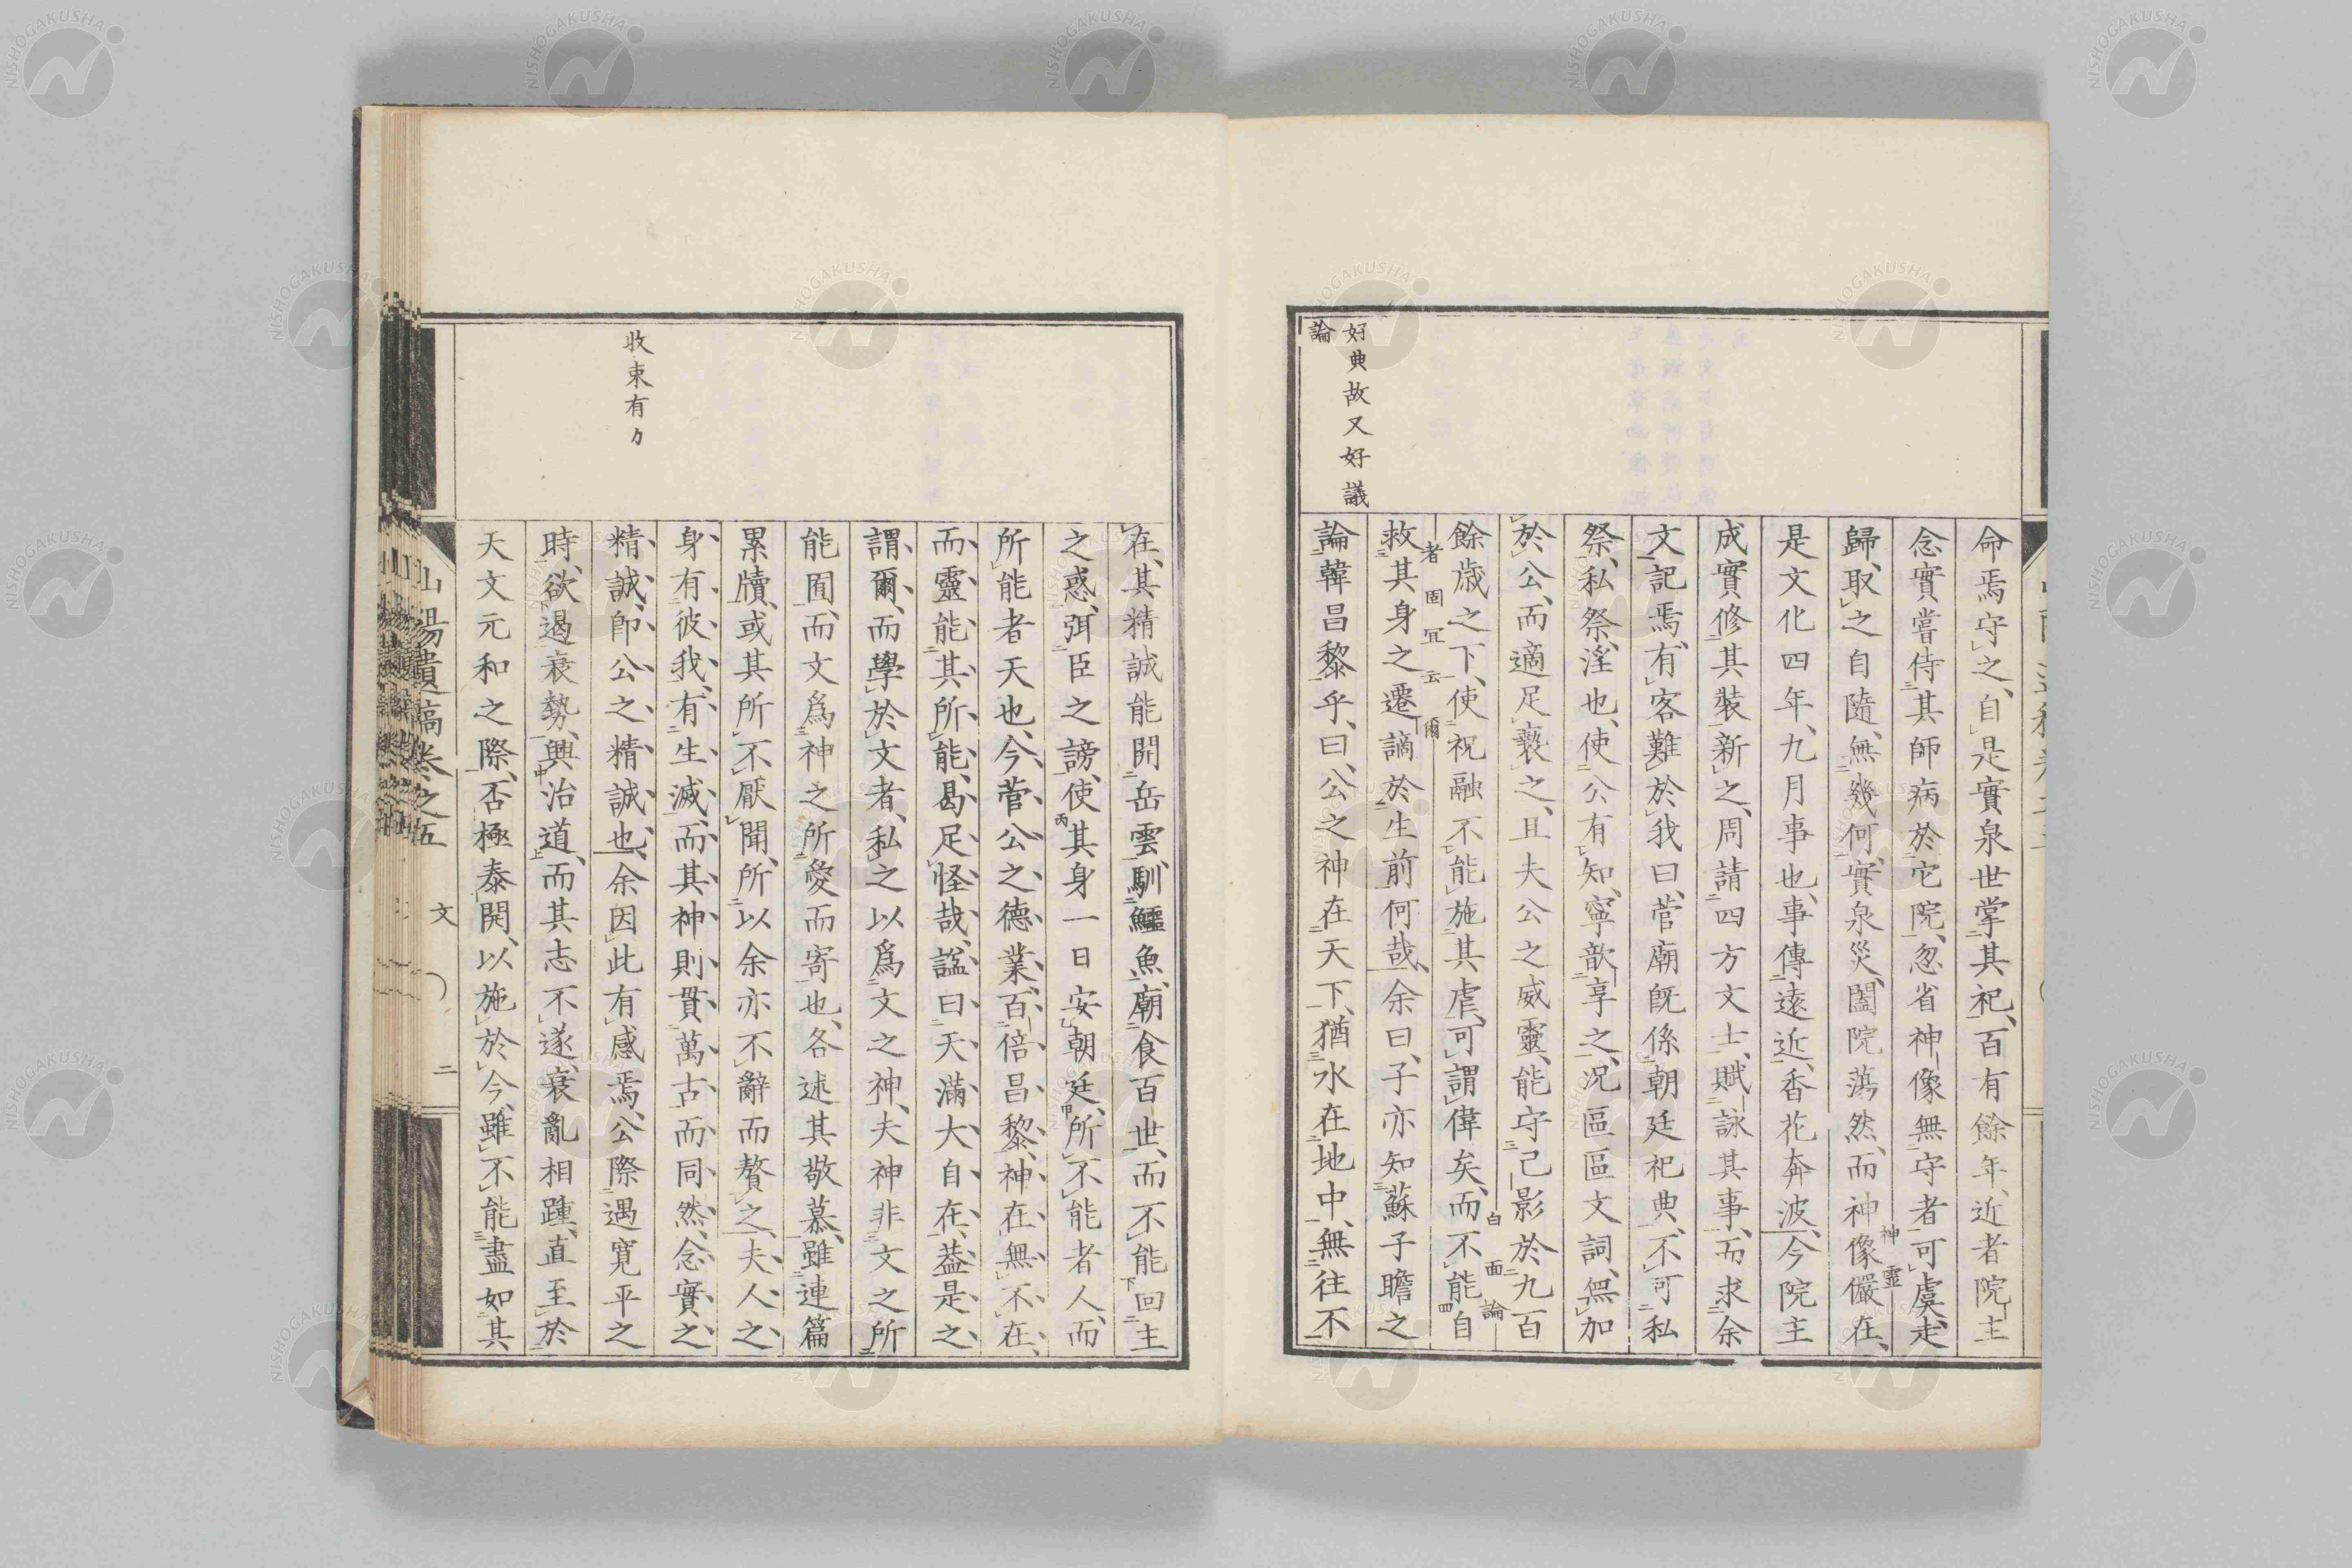 命焉守之自是實泉世掌其祀百有餘年近者院主
念實嘗侍其師病於它院忽省神像無守者可虞走
歸取之自隨無幾何實泉災闔院蕩然而神像儼在
神靈
是文化四年九月事也事傳遠近香花奔波今院主
成實修其裝新之周請四方文士賦詠其事而求余
文記焉有客難於我曰菅廟既係朝廷祀典不可私
祭私祭淫也使公有知寧歆享之況區區文詞無加
於公而適足褻之且夫公之威靈能守己影於九百
白面論
餘歲之下使祝融不能施其虐可謂偉矣而不能自
者固宜云爾
救其身之遷謫於生前何哉余曰子亦知蘇子瞻之
論韓昌黎乎曰公之神在天下猶水在地中無往不
好典故又好議
論
在其精誠能開岳雲馴鱷魚廟食百世而不能回主
之惑弭臣之謗使其身一日安朝廷所不能者人而
所能者天也今菅公之德業百倍昌黎神在無不在
而靈能其所能曷足怪哉諡曰天滿大自在蓋是之
謂爾而學於文者私之以為文之神夫神非文之所
能囿而文爲神之所愛而寄也各述其敬慕雖連篇
累牘或其所不厭聞所以余亦不辭而贅之夫人之
身有彼我有生滅而其神則貫萬古而同然念實之
精誠卽公之精誠也余因此有感焉公際遇寬平之
收束有力
時欲遏衰勢興治道而其志不遂衰亂相踵直至於
天文元和之際否極泰開以施於今雖不能盡如其
山陽遺稿卷之五 文 二